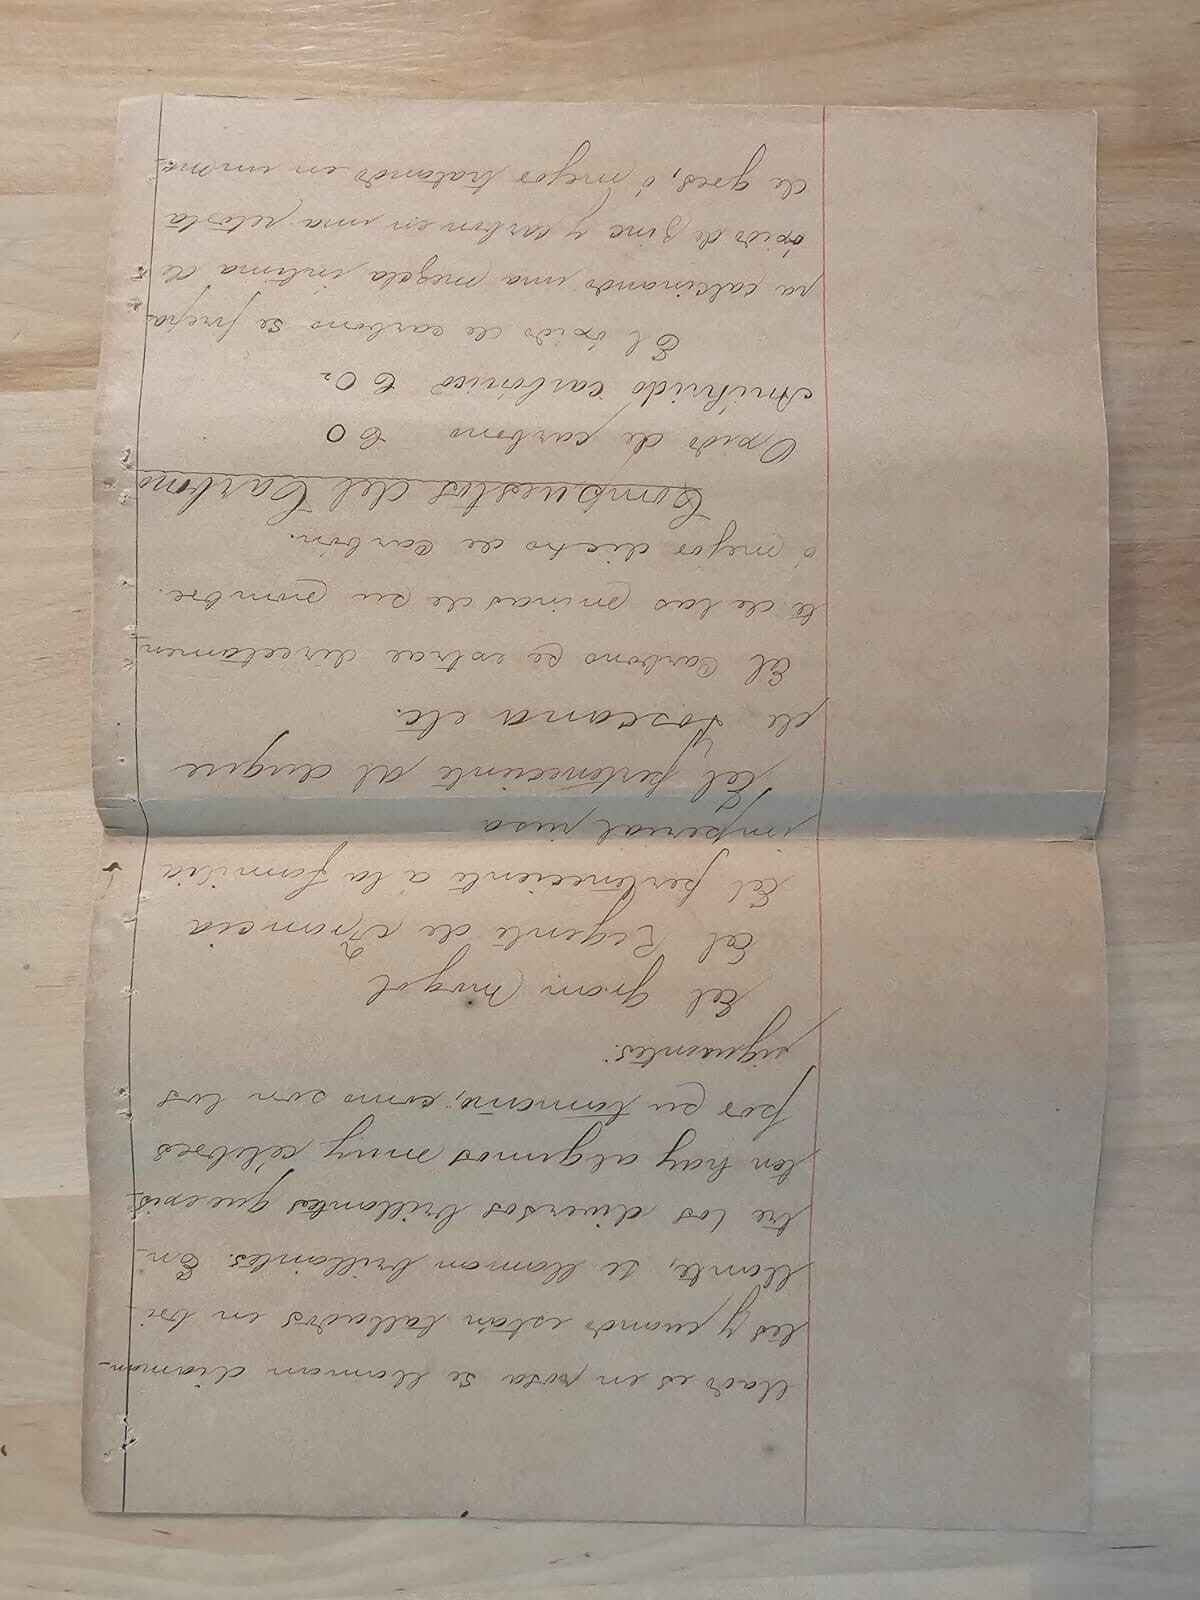 llado es en rosa se llaman diaman-
tes y cuando están tallados en bri-
llante, se llaman brillantes. En-
tre los diversos brillantes que exis-
ten hay algunos muy célebres
por su tamaño, como son los
siguientes:
El gran mogol
El Regente de Francia
El perteneciente á la familia
imperial rusa
El perteneciente al duque
de Toscana etc.
El Carbono se estrae directamen-
te de las minas de su nombre.
ó mejor dicho de carbón.
Compuestos del Carbono
Oxido de carbono CO
Anihrido carbónico CO2
El óxido de carbono se prepa-
ra calcinando una mezcla íntima de
óxido de zinc y carbon en una retorta
de gres, ó mejor tratando en un ma-